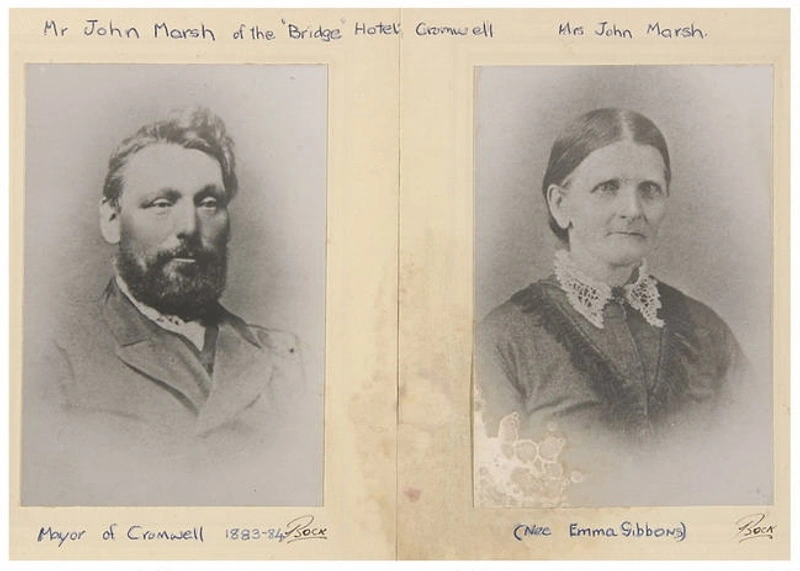 Mr John Marsh of the "Bridge" Hotel, Cromwell
Mrs John Marsh.
Mayor of Cromwell 1883-84 Bock
(Nee Emma Gibbons) Bock